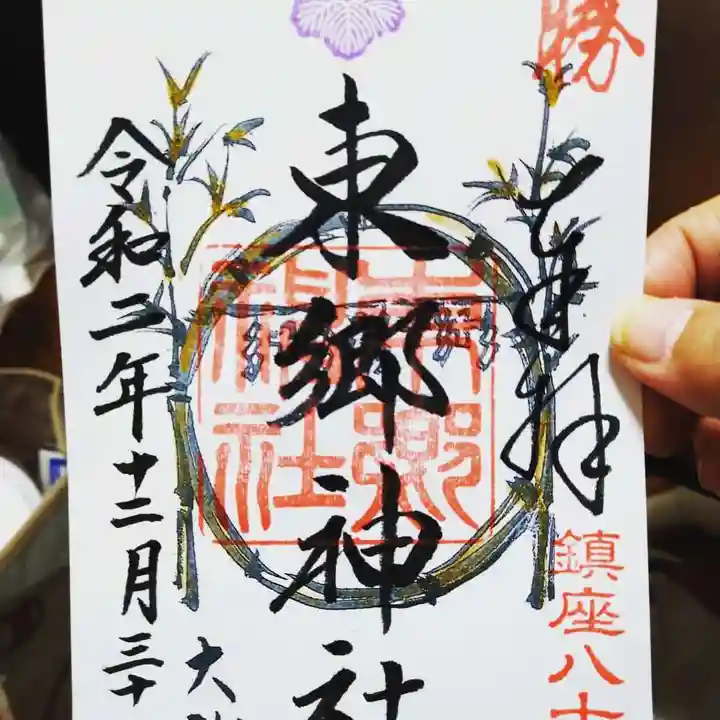 勝
奉拝
鎮座八十
東郷神社
東郷神社
令和二年十二月三十
大